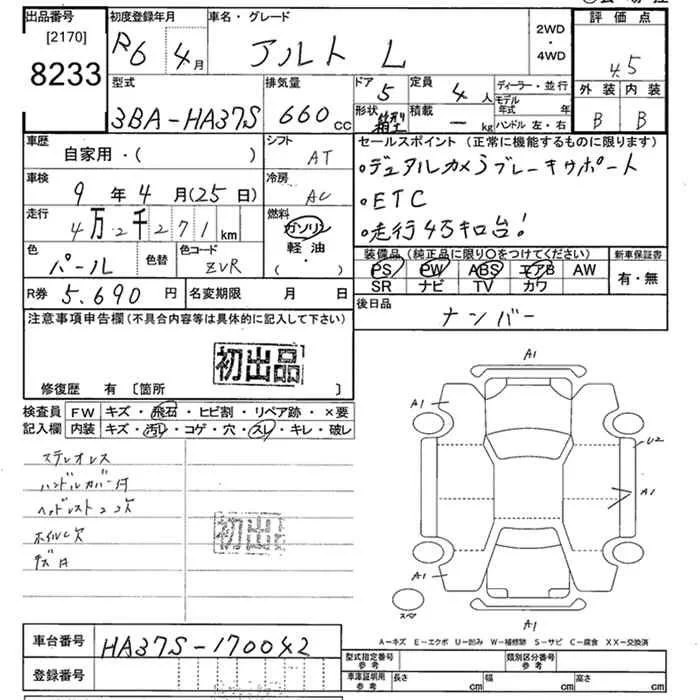 出品番号
[2170]
8233
初度登録年月
R6 4月
車名・グレード
アルト L
2WD
・
4WD
評価点
4.5
外装 内装
B B
型式
3BA-HA37S
排気量
660cc
ドア 5
形状 箱型
定員 4人
積載 ー kg
ディーラー・並行
モデル年式 年
ハンドル 左・右
車歴
自家用・( )
シフト
AT
車検
9年4月(25日)
冷房
AC
走行
4万2千271km
燃料
ガソリン
軽・油
( )
色
パール
色替
色コード
ZVR
R券 5,690円
名変期限 月 日
セールスポイント (正常に機能するものに限ります)
・デュアルカメラブレーキサポート
・ETC
・走行4万キロ台!
装備品(純正品に限り〇をつけてください)
PS PW ABS エアB AW
SR ナビ TV カワ
新車保証書
有・無
後日品
ナンバー
注意事項申告欄(不具合内容等は具体的に記入して下さい)
初出品
修復歴 有 〔箇所 〕
検査員記入欄
FW キズ・飛石・ヒビ割・リペア跡・×要
内装 キズ・汚れ・コゲ・穴・スレ・キレ・破レ
ステレオレス
ハンドルカバー付
ヘッドレスト2コ欠
ホイルC欠
初出品
A1
A1
U2
A1
A1
A1
スペア
A-キズ E-エクボ U-凹み W-補修跡 S-サビ C-腐食 XX-交換済
車台番号
HA37S-170042
登録番号
型式指定番号 参考
類別区分番号 参考
車庫証明用 参考
長さ cm
幅 cm
高さ cm